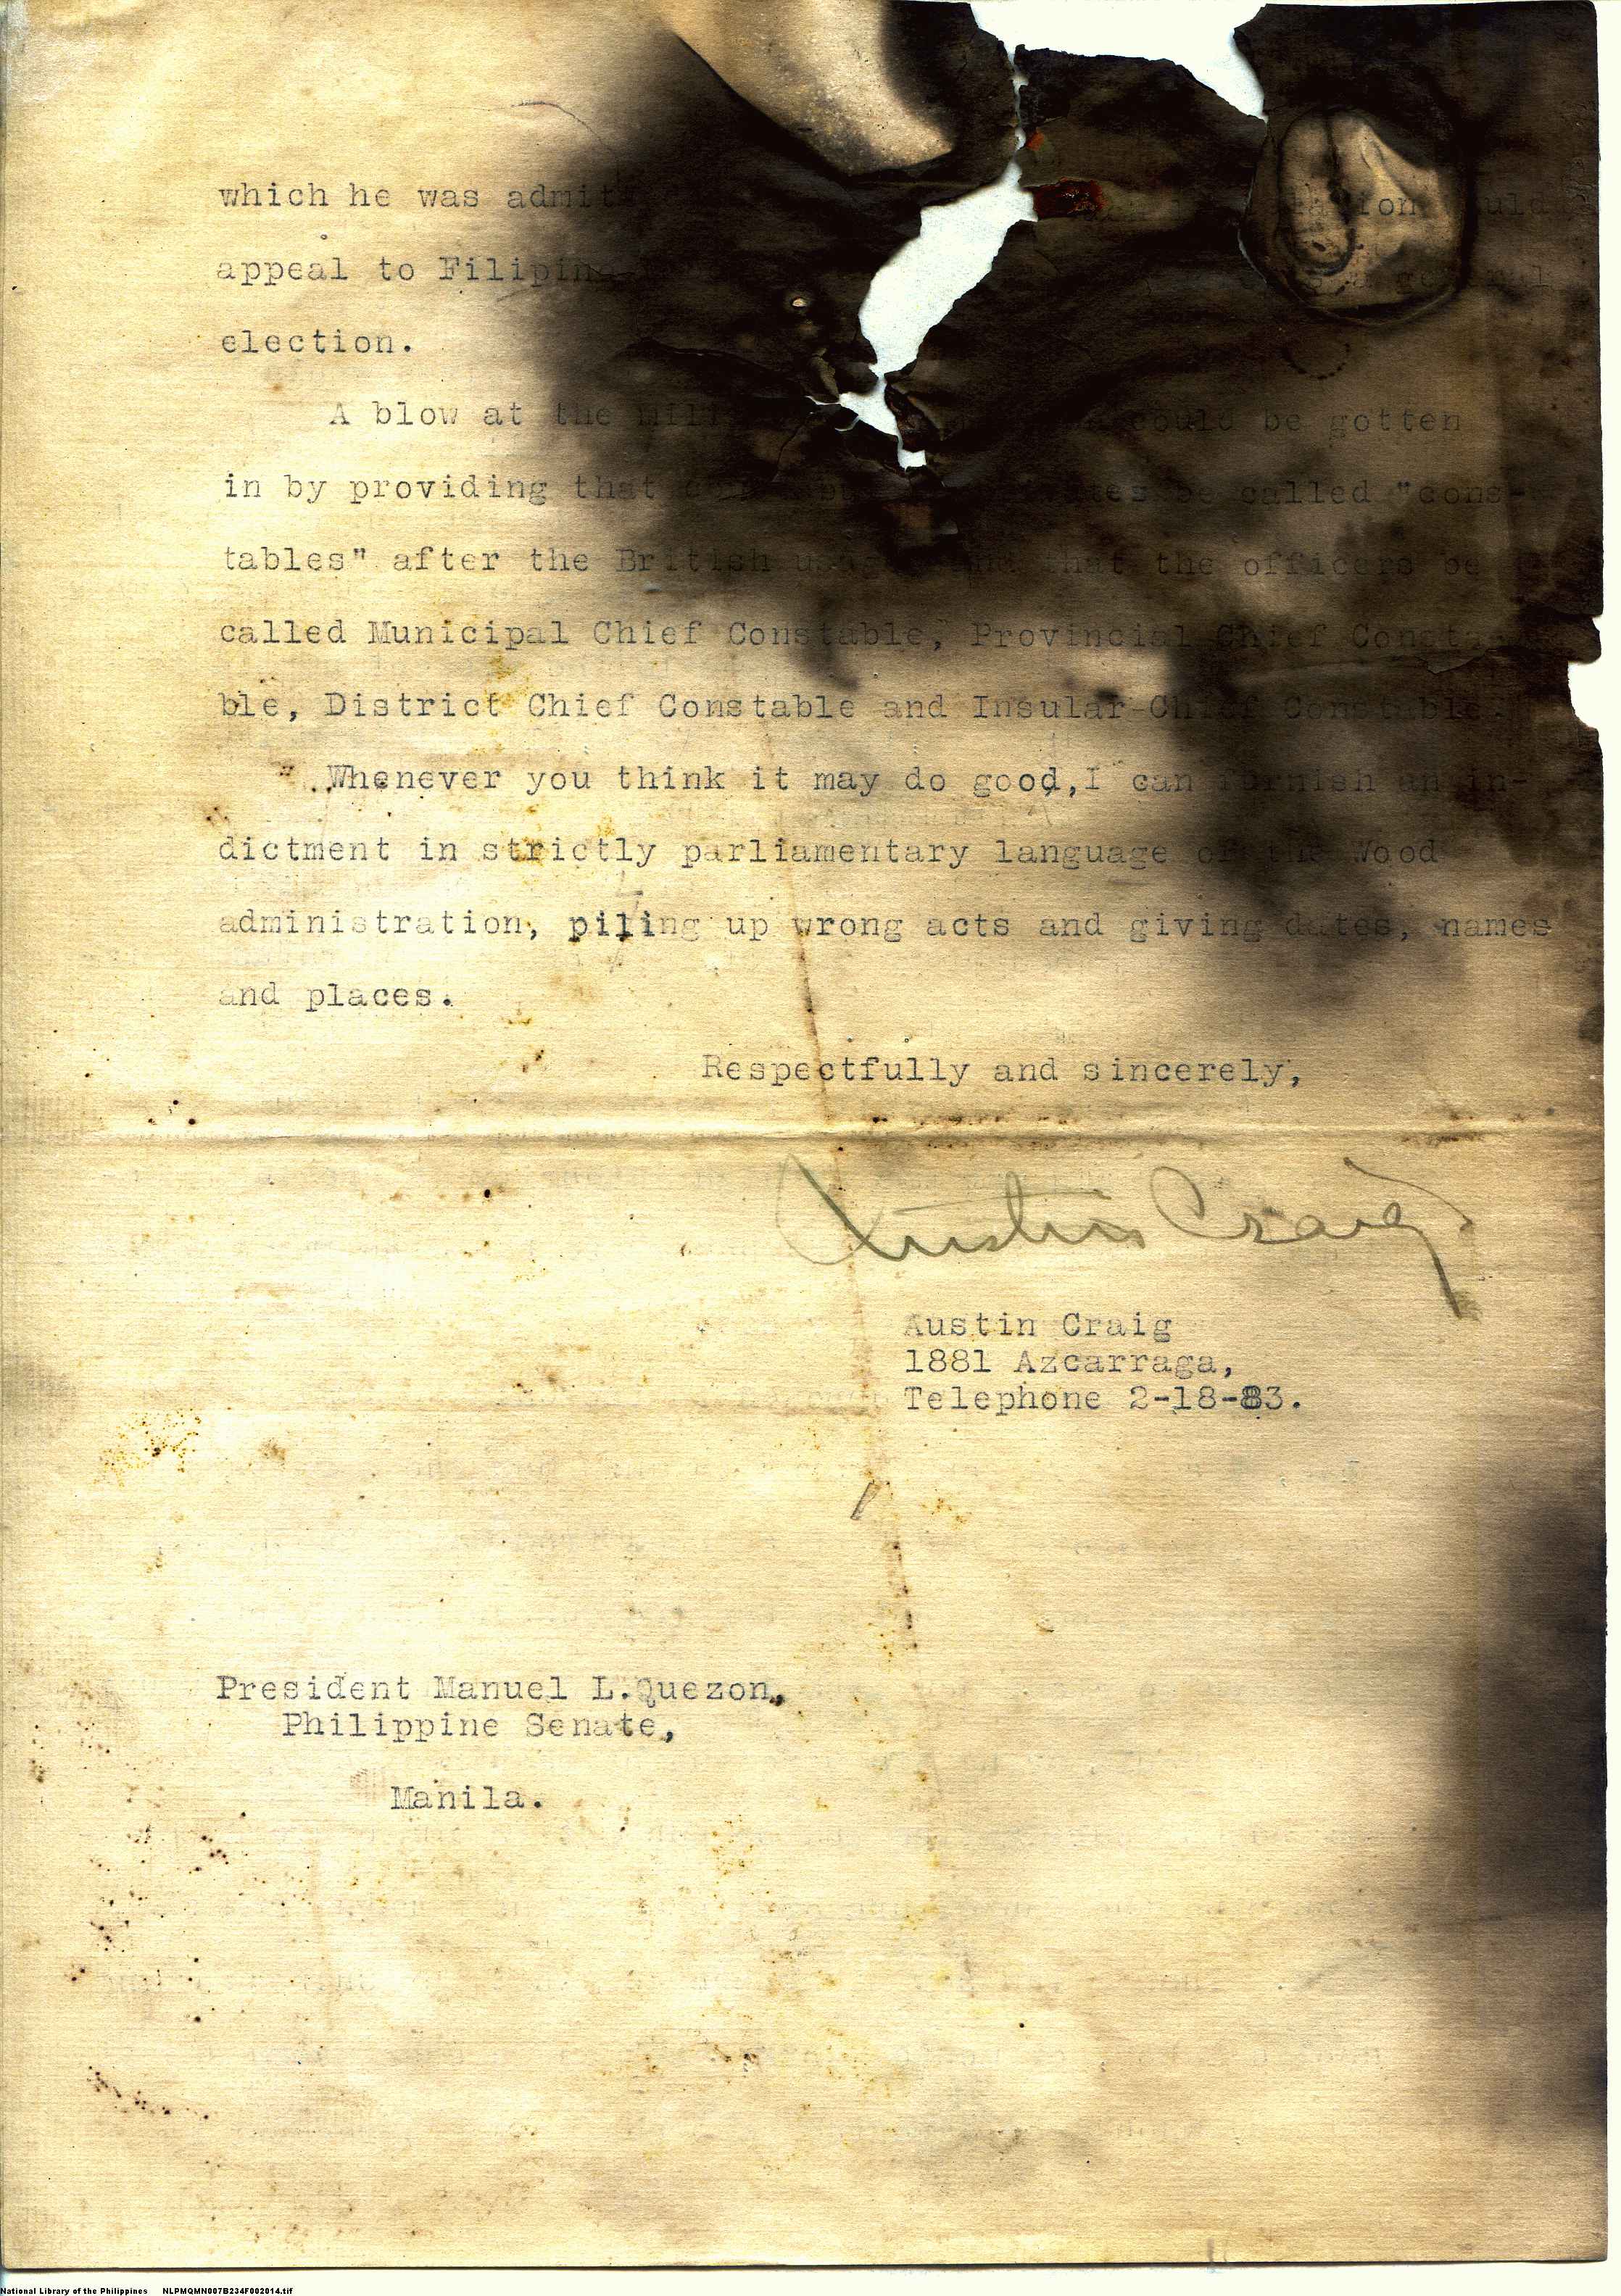 which he was admit
appeal to Filipin
election.
A blow at the could be gotten
in by providing that be called "cons-
tables" after the British that the officers be
called Municipal Chief Constable, Provincial Chief Consta-
ble, District Chief Constable and Insular Chief Constable.
Whenever you think it may do good,I can furnish an in-
dictment in strictly parliamentary language of the Wood
administration, piling up wrong acts and giving dates, names
and places.
Respectfully and sincerely,
Austin Craig
Austin Craig
1881 Azcarraga,
Telephone 2-18-83.
President Manuel L.Quezon,
Philippine Senate,
Manila.
National Library of the Philippines NLPMQMN007B234F002014.tif